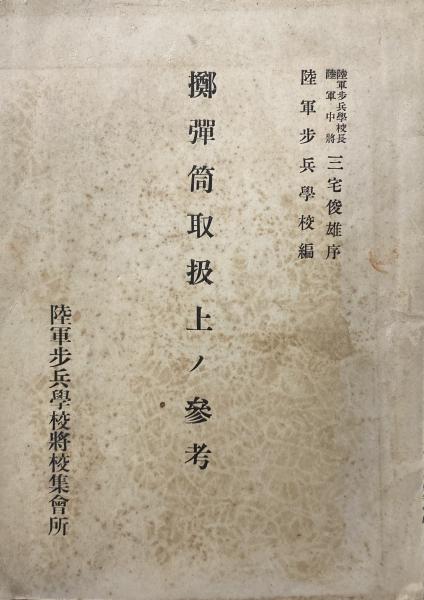 陸軍步兵學校長
陸軍中將
三宅俊雄序
陸軍步兵學校編
擲彈筒取扱上ノ參考
陸軍步兵學校將校集會所